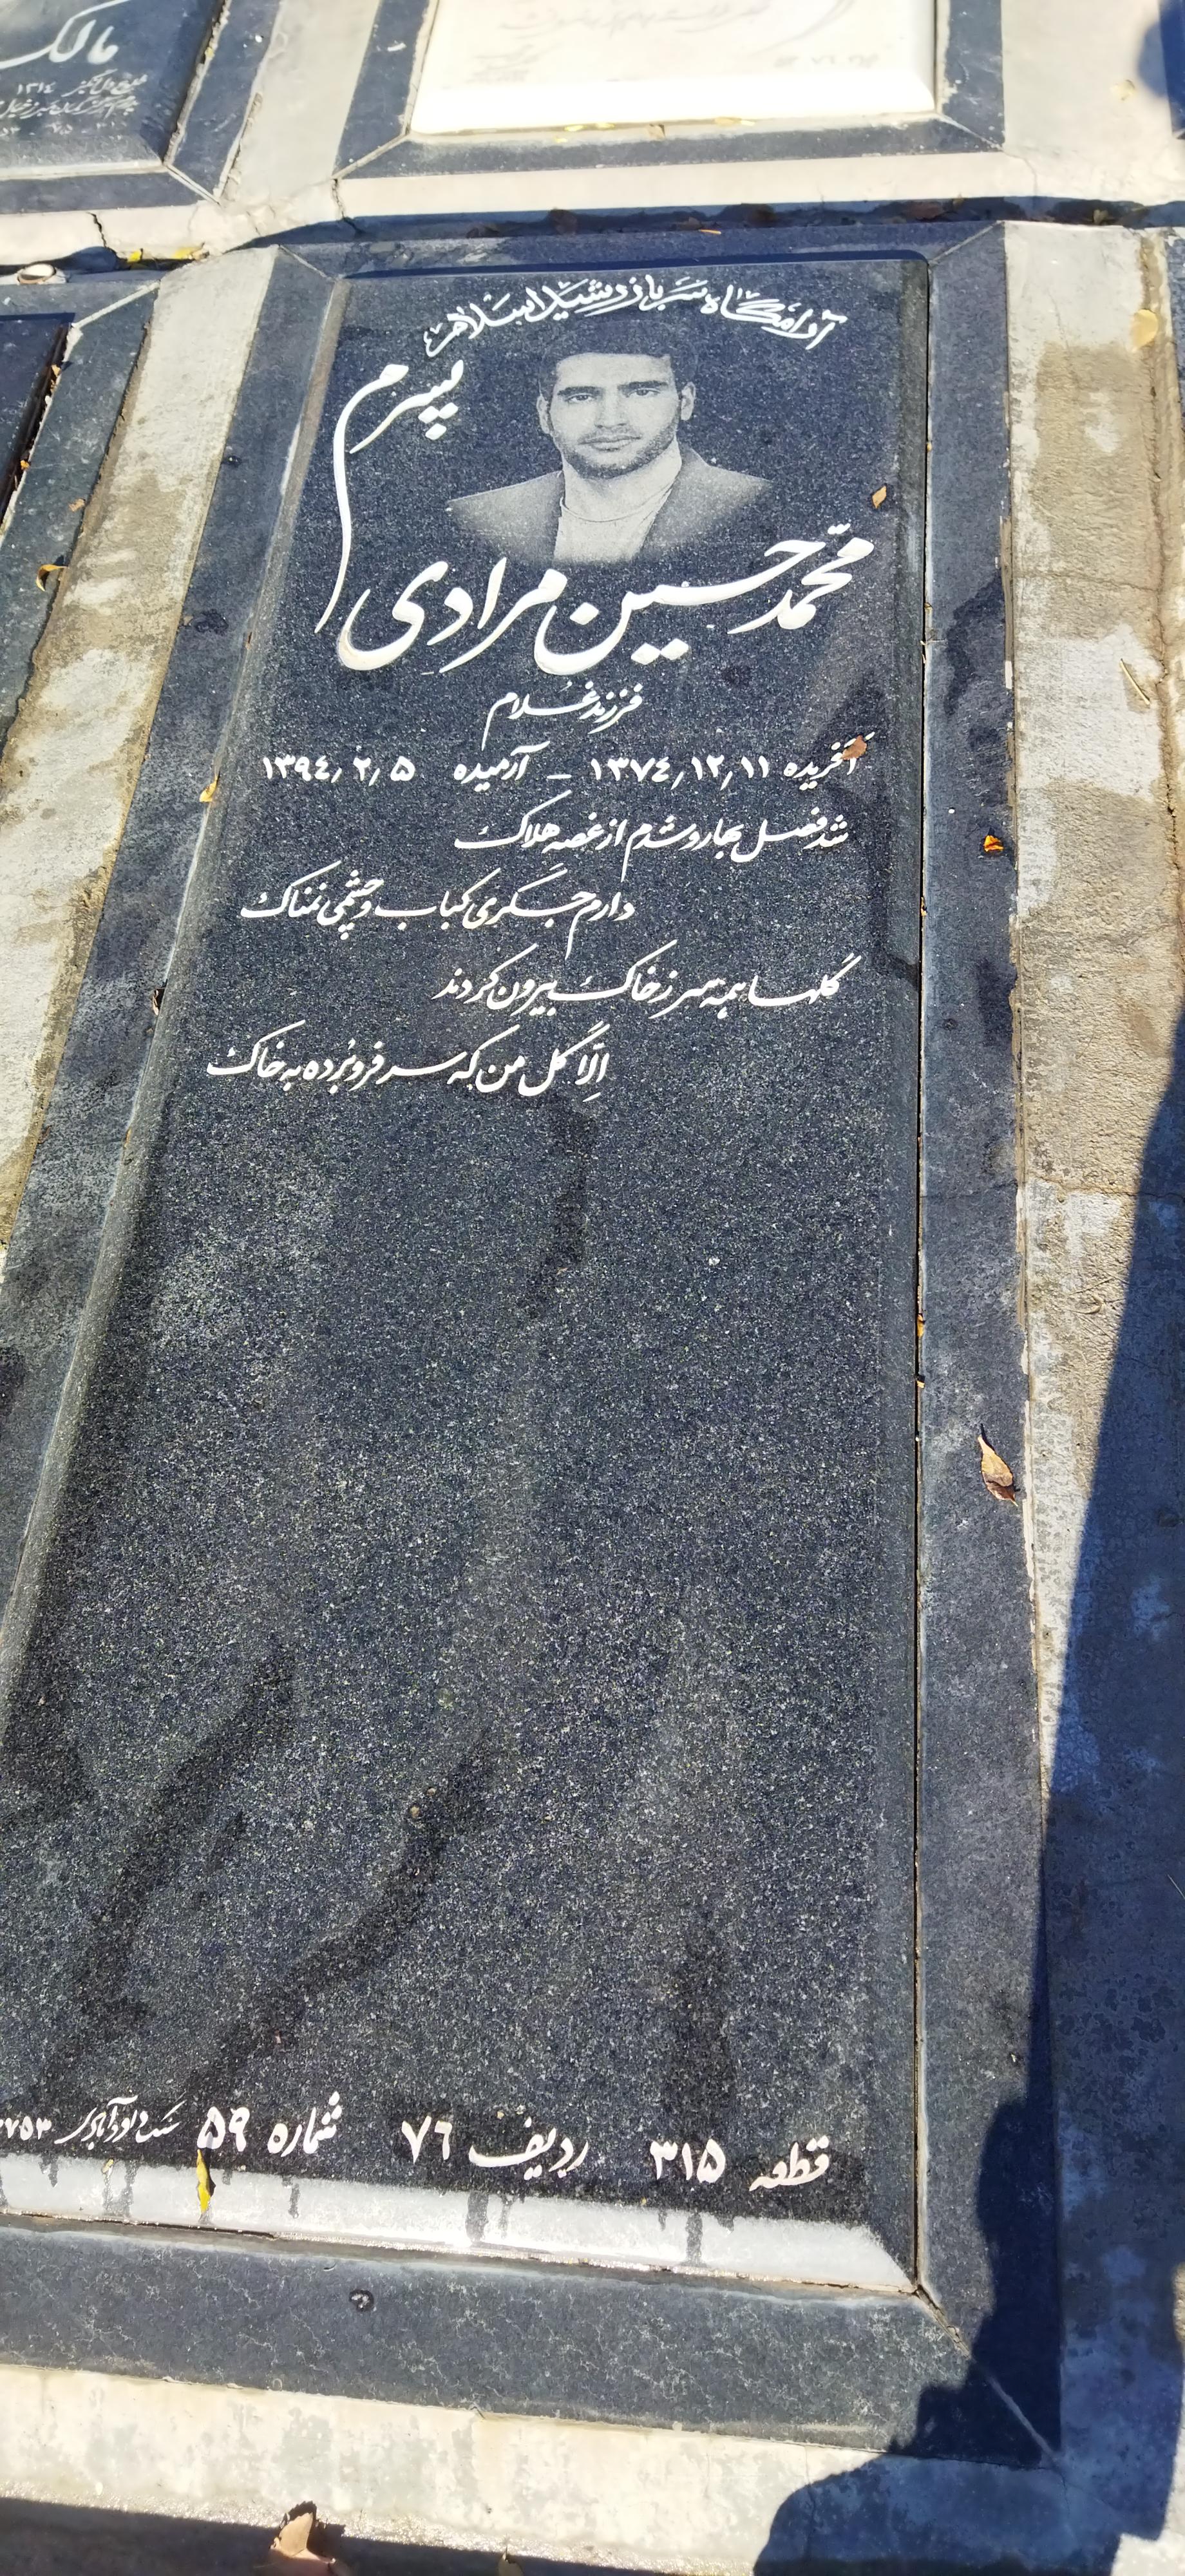 مالک
۱۳۱٤
آرامگاه سرباز رشید اسلام
پسرم
محمد حسین مرادی
فرزند غلام
آفریده ۱۳۷٤/۱۲/۱۱ - آرمیده ۱۳۹٤/۲/۵
شد فصل بهار و شدم از غصه هلاک
دارم جگری کباب و چشمی نمناک
گلها همه سر ز خاک بیرون کردند
الّا گل من که سر فرو برده به خاک
قطعه ۳۱۵ ردیف ۷٦ شماره ۵۹ سنگ داودآبادی